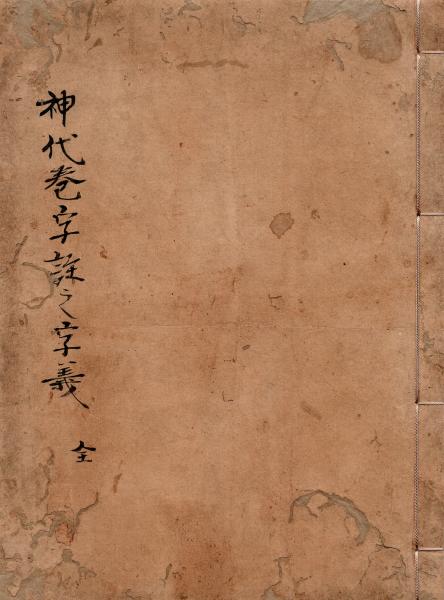 神代巻字註之字義
全